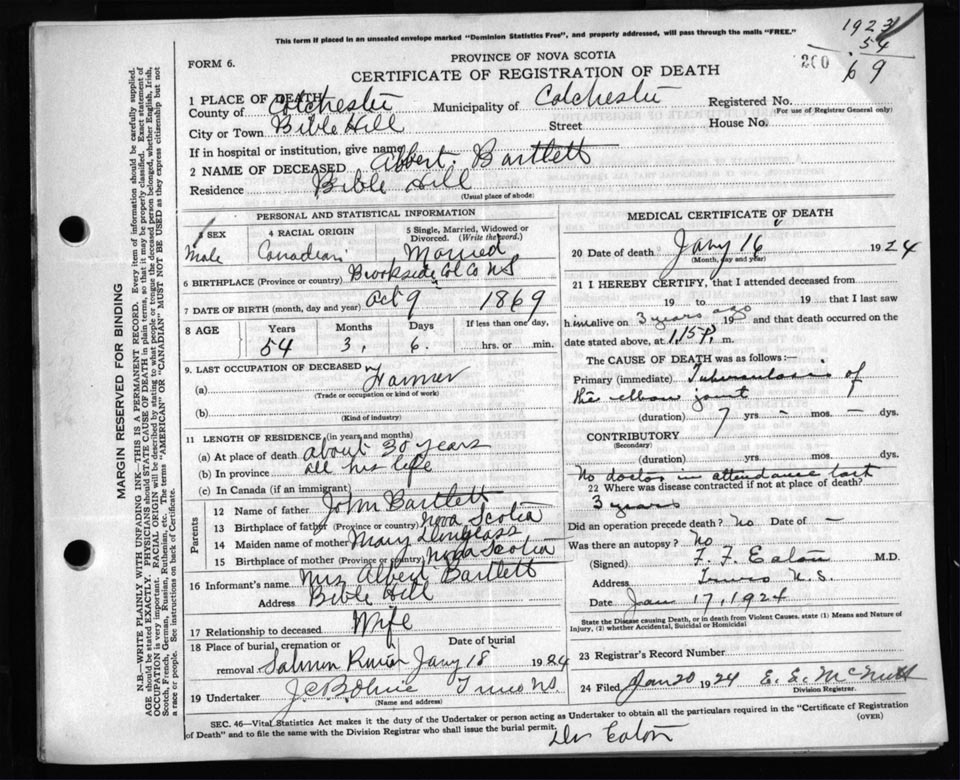 This form if placed in an unsealed envelope marked "Dominion Statistics Free", and properly addressed, will pass through the mails "FREE."
1923
54
200
69
FORM 6.
PROVINCE OF NOVA SCOTIA
CERTIFICATE OF REGISTRATION OF DEATH
1 PLACE OF DEATH
County of Colchester Municipality of Colchester Registered No.
(For use of Registrar General only)
City or Town Bible Hill Street House No.
If in hospital or institution, give name
2 NAME OF DECEASED Albert Bartlett
Residence Bible Hill
(Usual place of abode)
PERSONAL AND STATISTICAL INFORMATION
3 SEX
Male
4 RACIAL ORIGIN
Canadian
5 Single, Married, Widowed or Divorced. (Write the word.)
Married
6 BIRTHPLACE (Province or country) Brookside Col Co NS
7 DATE OF BIRTH (month, day and year) Oct 9 1869
8 AGE Years Months Days If less than one day,
54 3, 6. hrs. or min.
9. LAST OCCUPATION OF DECEASED
(a) Farmer
(Trade or occupation or kind of work)
(b)
(Kind of industry)
11 LENGTH OF RESIDENCE (in years and months)
(a) At place of death about 30 years
(b) In province all his life
(c) In Canada (if an immigrant)
Parents
12 Name of father John Bartlett
13 Birthplace of father (Province or country) Nova Scotia
14 Maiden name of mother Mary
15 Birthplace of mother (Province or country) Nova Scotia
16 Informant's name Mrs Albert Bartlett
Address Bible Hill
17 Relationship to deceased Wife
18 Place of burial, cremation or removal Salmon River Date of burial Jany 18 1924
19 Undertaker Truro NS
(Name and address)
MEDICAL CERTIFICATE OF DEATH
20 Date of death Jany 16 1924
(Month, day and year)
21 I HEREBY CERTIFY, that I attended deceased from
19 to 19 that I last saw
him alive on 3 years ago 19 and that death occurred on the
date stated above, at 1.15 P. m.
The CAUSE OF DEATH was as follows:—
Primary (immediate) Tuberculosis of
the elbow joint
(duration) 7 yrs - mos. - dys.
CONTRIBUTORY
(Secondary)
(duration) yrs. mos. dys.
No doctor in attendance last
22 Where was disease contracted if not at place of death?
3 years
Did an operation precede death? No Date of —
Was there an autopsy? No
(Signed) F. F. Eaton M.D.
Address Truro N.S.
Date Jan 17, 1924
State the Disease causing Death, or in death from Violent Causes, state (1) Means and Nature of Injury, (2) whether Accidental, Suicidal or Homicidal
23 Registrar's Record Number
24 Filed Jan 20 1924 E. E. McNutt
Division Registrar.
SEC. 46—Vital Statistics Act makes it the duty of the Undertaker or person acting as Undertaker to obtain all the particulars required in the "Certificate of Registration
of Death" and to file the same with the Division Registrar who shall issue the burial permit.
(OVER)
Dr Eaton
MARGIN RESERVED FOR BINDING
N.B.—WRITE PLAINLY WITH UNFADING INK—THIS IS A PERMANENT RECORD. Every item of information should be carefully supplied.
AGE should be stated EXACTLY. PHYSICIANS should STATE CAUSE OF DEATH in plain terms, so that it may be properly classified. Exact statement of
OCCUPATION is very important. RACIAL ORIGIN will be described by stating to what people or tongue the deceased person belonged, whether English, Irish,
Scotch, French, German, Russian, Ruthenian, etc. The terms "AMERICAN" OR "CANADIAN" MUST NOT BE USED as they express citizenship but not
a race or people. See instructions on back of Certificate.